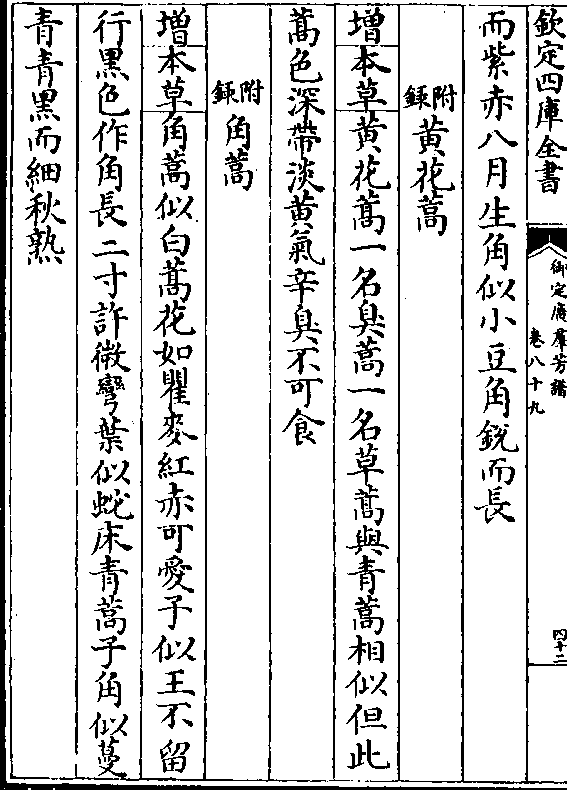 欽定四庫全書
御定廣羣芳譜
卷八十九
四十二
而紫赤八月生角似小豆角銳而長
附錄黃花蒿
增本草黃花蒿一名臭蒿一名草蒿與青蒿相似但此
蒿色深帶淡黃氣辛臭不可食
附錄角蒿
增本草角蒿似白蒿花如瞿麥紅赤可愛子似王不留
行黑色作角長二寸許微彎葉似蛇床青蒿子角似蔓
青青黑而細秋熟